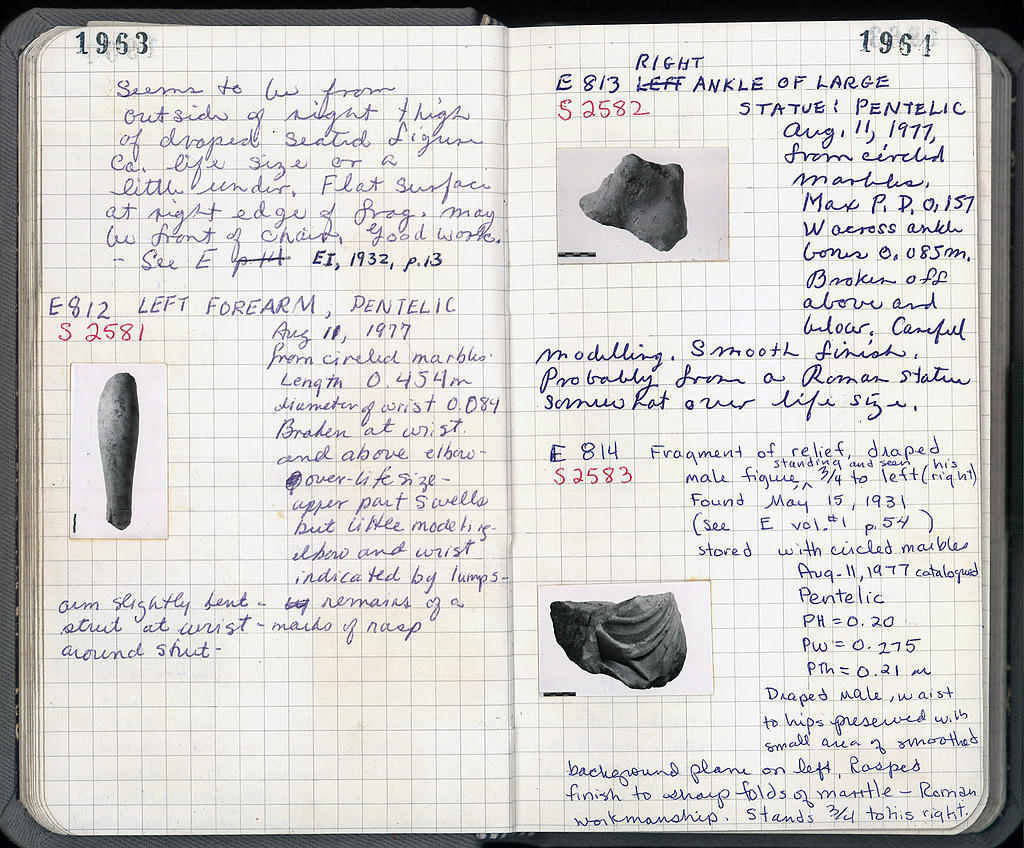 1963
Seems to be from
outside of right thigh
of draped seated figure
Ca. life size or a
little under. Flat surface
at right edge of frag. may
be front of chair. Good work.
- See E p.111 EI, 1932, p.13
E 812 LEFT FOREARM, PENTELIC
S 2581
Aug 11, 1977
from circled marbles.
Length 0.454m
diameter of wrist 0.084
Broken at wrist
and above elbow-
over-life size-
upper part swells
but little modeling-
elbow and wrist
indicated by lumps-
arm slightly bent - remains of a
strut at wrist - marks of rasp
around strut-
1964
RIGHT
E 813 LEFT ANKLE OF LARGE
S 2582
STATUE: PENTELIC
Aug. 11, 1977,
from circled
marbles.
Max P. D. 0.157
W across ankle
bones 0.085m.
Broken off
above and
below. Careful
modelling. Smooth finish.
Probably from a Roman statue
somewhat over life size.
E 814 Fragment of relief, draped
S 2583
standing and seen his
male figure, ^ 3/4 to left (right)
Found May 15, 1931
(See E vol. #1 p.54)
stored with circled marbles
Aug-11, 1977 catalogued
Pentelic
PH = 0.20
PW = 0.275
PTh = 0.21 m
Draped male, waist
to hips preserved with
small area of smoothed
background plane on left. Rasped
finish to sharp folds of mantle - Roman
workmanship. Stands 3/4 to his right.